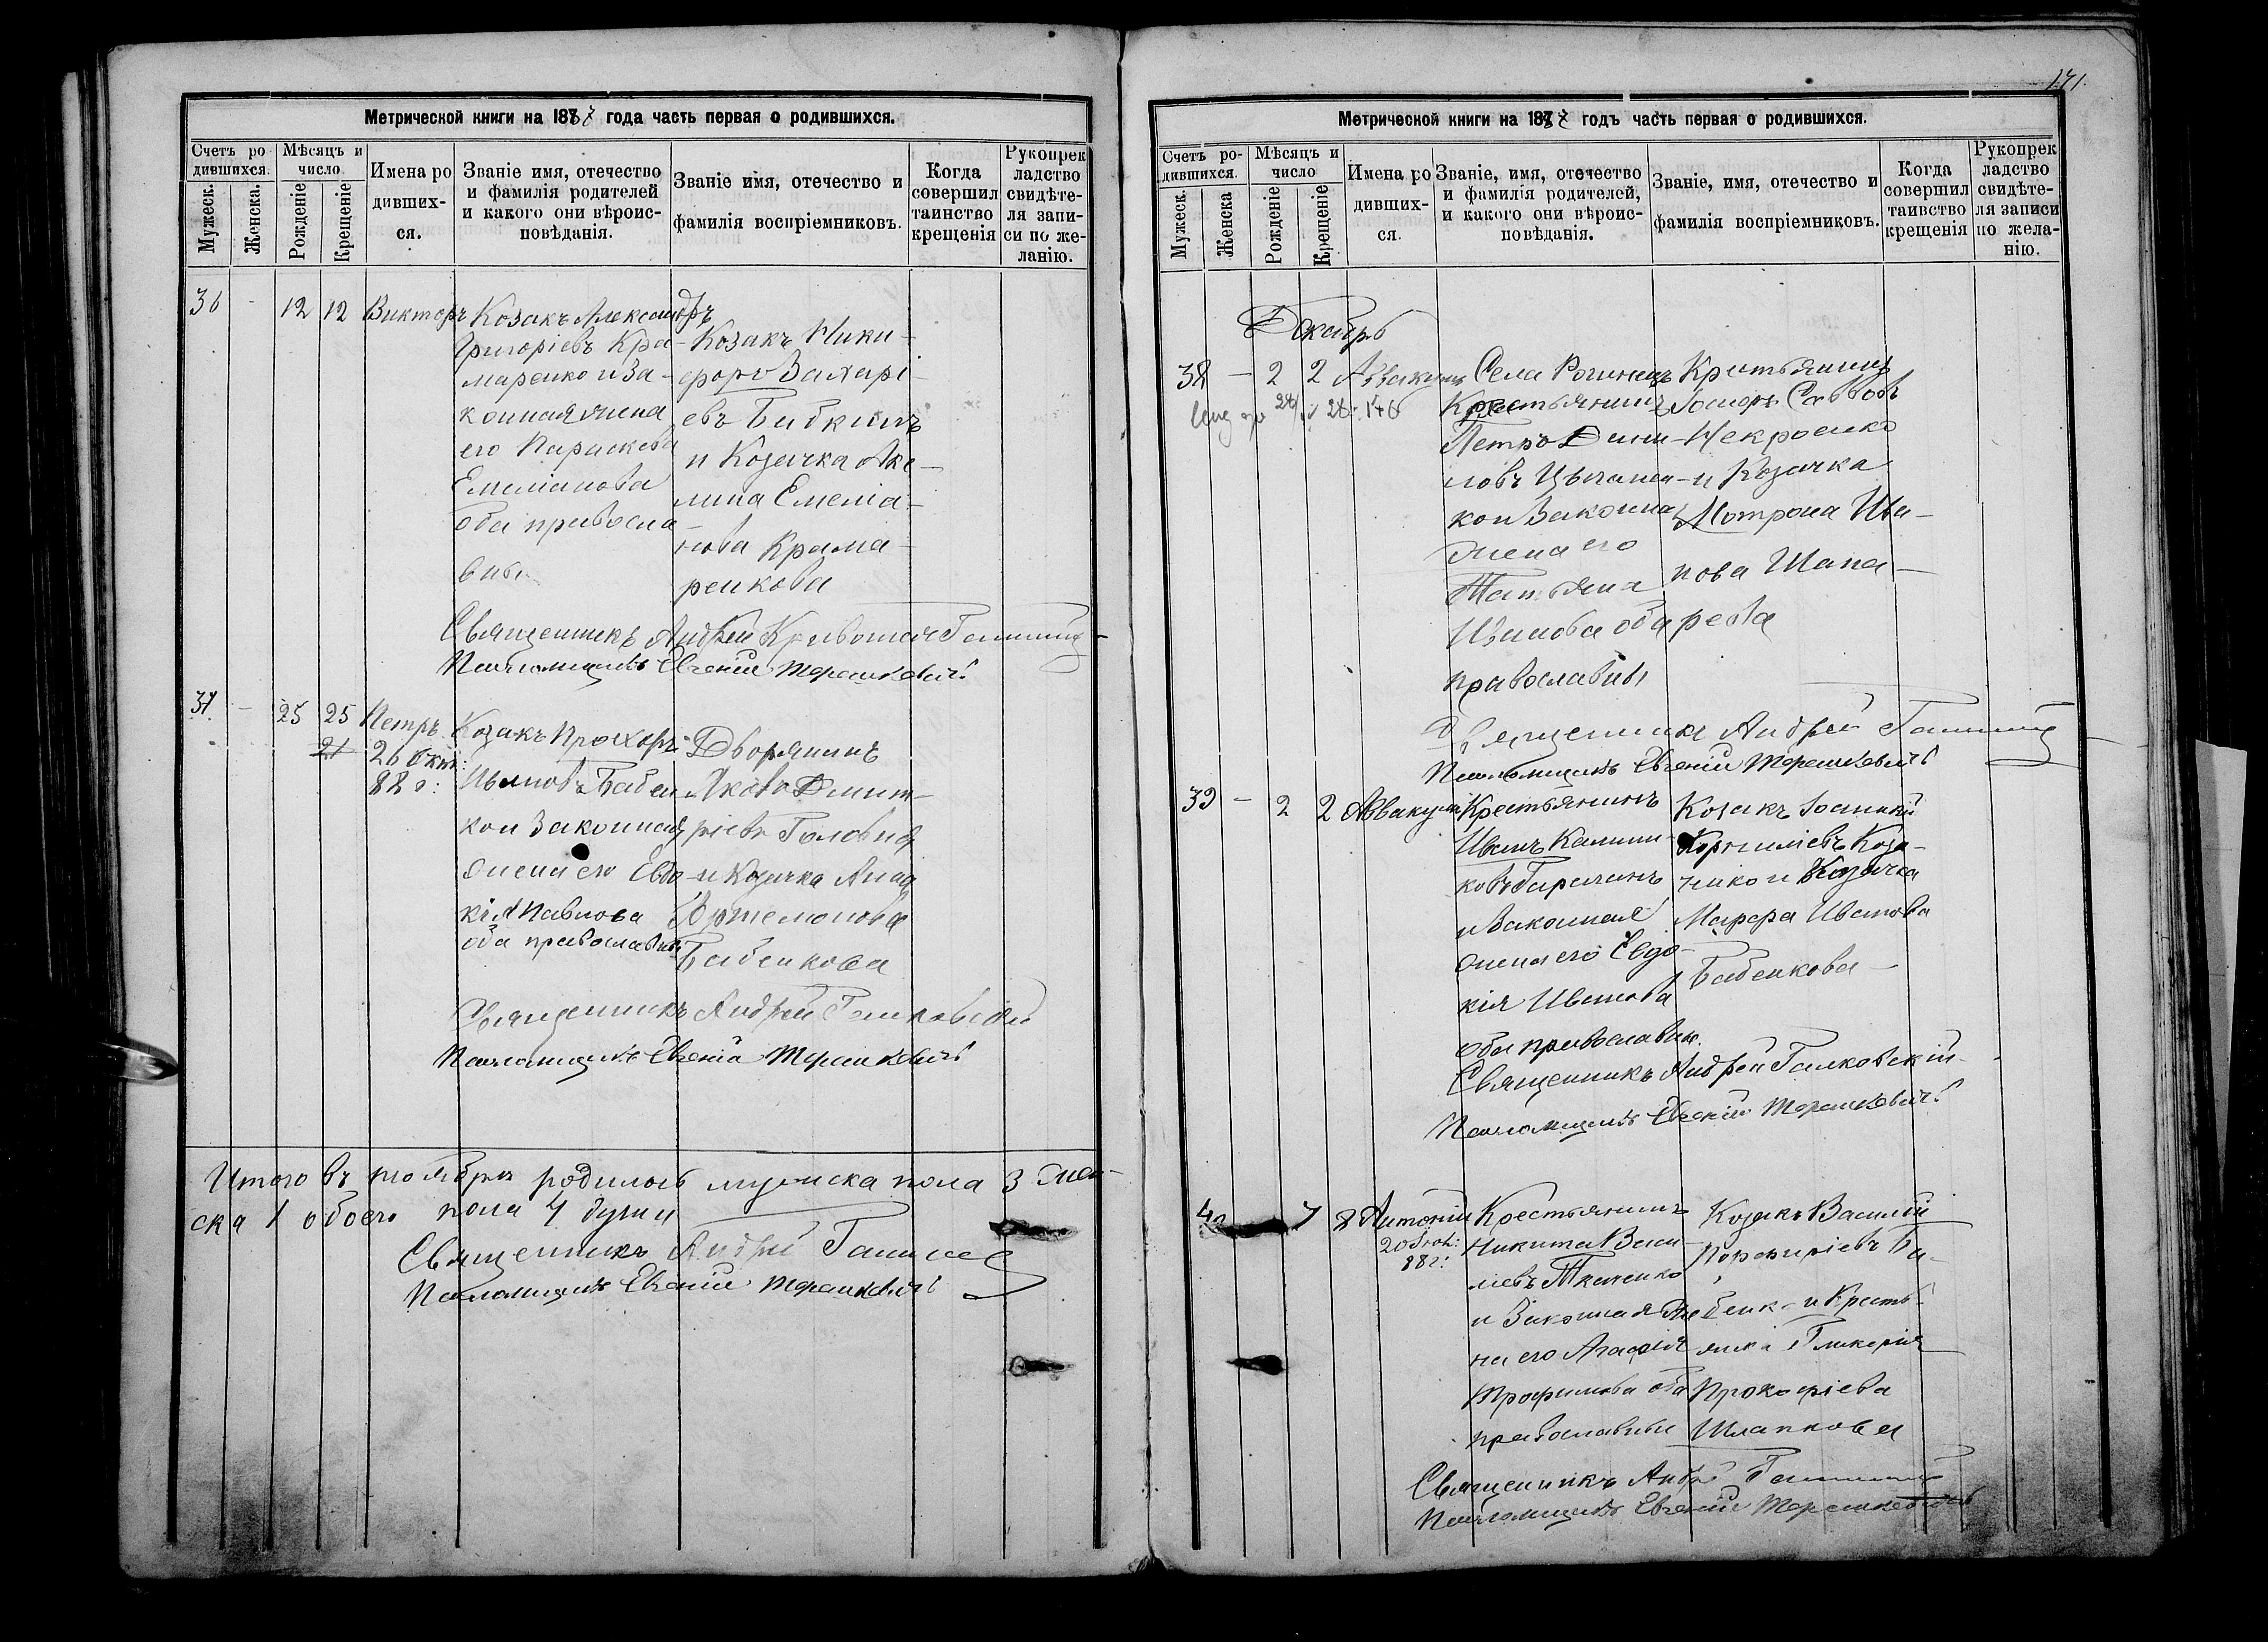 Метрической книги на 1887 года часть первая о родившихся.
Счетъ ро
дившихся.
Мѣсяцъ и
число
Имена ро
дивших-
ся.
Званіе имя, отечество
и фамилія родителей
и какого они вѣроис-
повѣданія.
Званіе имя, отечество и
фамилія воспріемниковъ.
Когда
совершил
таинство
крещенія
Рукоприк
ладство
свидѣте-
ля запи-
си по же-
ланію.
Мужеск.
Женска.
Рожденіе
Крещеніе
36 - 12 12 Викторъ Козакъ Александръ
Григоріевъ Кра-
маренко и За-
конная жена
его Параскева
Емеліанова
оба правосла-
вны
Козакъ Ники-
форъ Захарі-
евъ
и Козачка Аки-
лина Емеліа-
нова Крама-
ренкова
Священникъ Андрей
Псаломщикъ Евгеній Терешкевичъ
37. - 25 25 Петръ
21 26 Окт:
88 г:
Козакъ Прохоръ
Ивановъ Бабен
ко и Законная
жена его Евдо-
кія Павлова
оба православны
Дворянинъ
Яковъ Дмит-
ріевъ Головня
и Козачка Анна
Артемонова
Бабенкова
Священникъ Андрей Галковскій
Псаломщикъ Евгеній Терешкевичъ
Итого въ ноябрѣ родилось мужска пола 3 жен-
ска 1 обоего пола 4 души
Священникъ Андрей
Псаломщикъ Евгеній Терешкевичъ
171.
Метрической книги на 1887 годъ часть первая о родившихся.
Счетъ ро-
дившихся.
Мѣсяцъ и
число
Имена ро
дивших-
ся.
Званіе, имя, отечество
и фамилія родителей,
и какого они вѣроис-
повѣданія.
Званіе, имя, отечество и
фамилія воспріемниковъ.
Когда
совершил
таинство
крещенія
Рукоприк
ладство
свидѣте-
ля записи
по жела-
нію.
Мужеск.
Женска
Рожденіе
Крещеніе
Декабрь
38 - 2 2 Аввакумъ
Села Рогинецъ
Крестьянинъ
Петръ Дани-
ловъ Цыганен-
ко и Законна
жена его
Татьяна
Иванова оба
православны
Крестьянинъ
Савовъ
Некроенко
и Козачка
Мотрона Ива-
нова Шапа-
рева
Священникъ Андрей
Псаломщикъ Евгеній Терешкевичъ
39 - 2 2 Аввакумъ
Крестьянинъ
Иванъ Калини-
ковъ
и Законная
жена его Евдо-
кія Иванова
оба православны.
Козакъ Іоанникій
Корниліевъ Коза-
ченко и Козачка
Марфа Иванова
Бабенкова
Священникъ Андрей Галковскій
Псаломщикъ Евгеній Терешкевичъ
40 7 8 Антоній
88 г.
Крестьянинъ
Никита Васи-
ліевъ Ткаченко
и Законная же
на его Агафія
Трофимова оба
православны
Козакъ Василій
Порфиріевъ Ба-
бенко и Кресть-
янка Гликерія
Прокофіева
Шлапкова
Священникъ Андрей
Псаломщикъ Евгеній Терешкевичъ